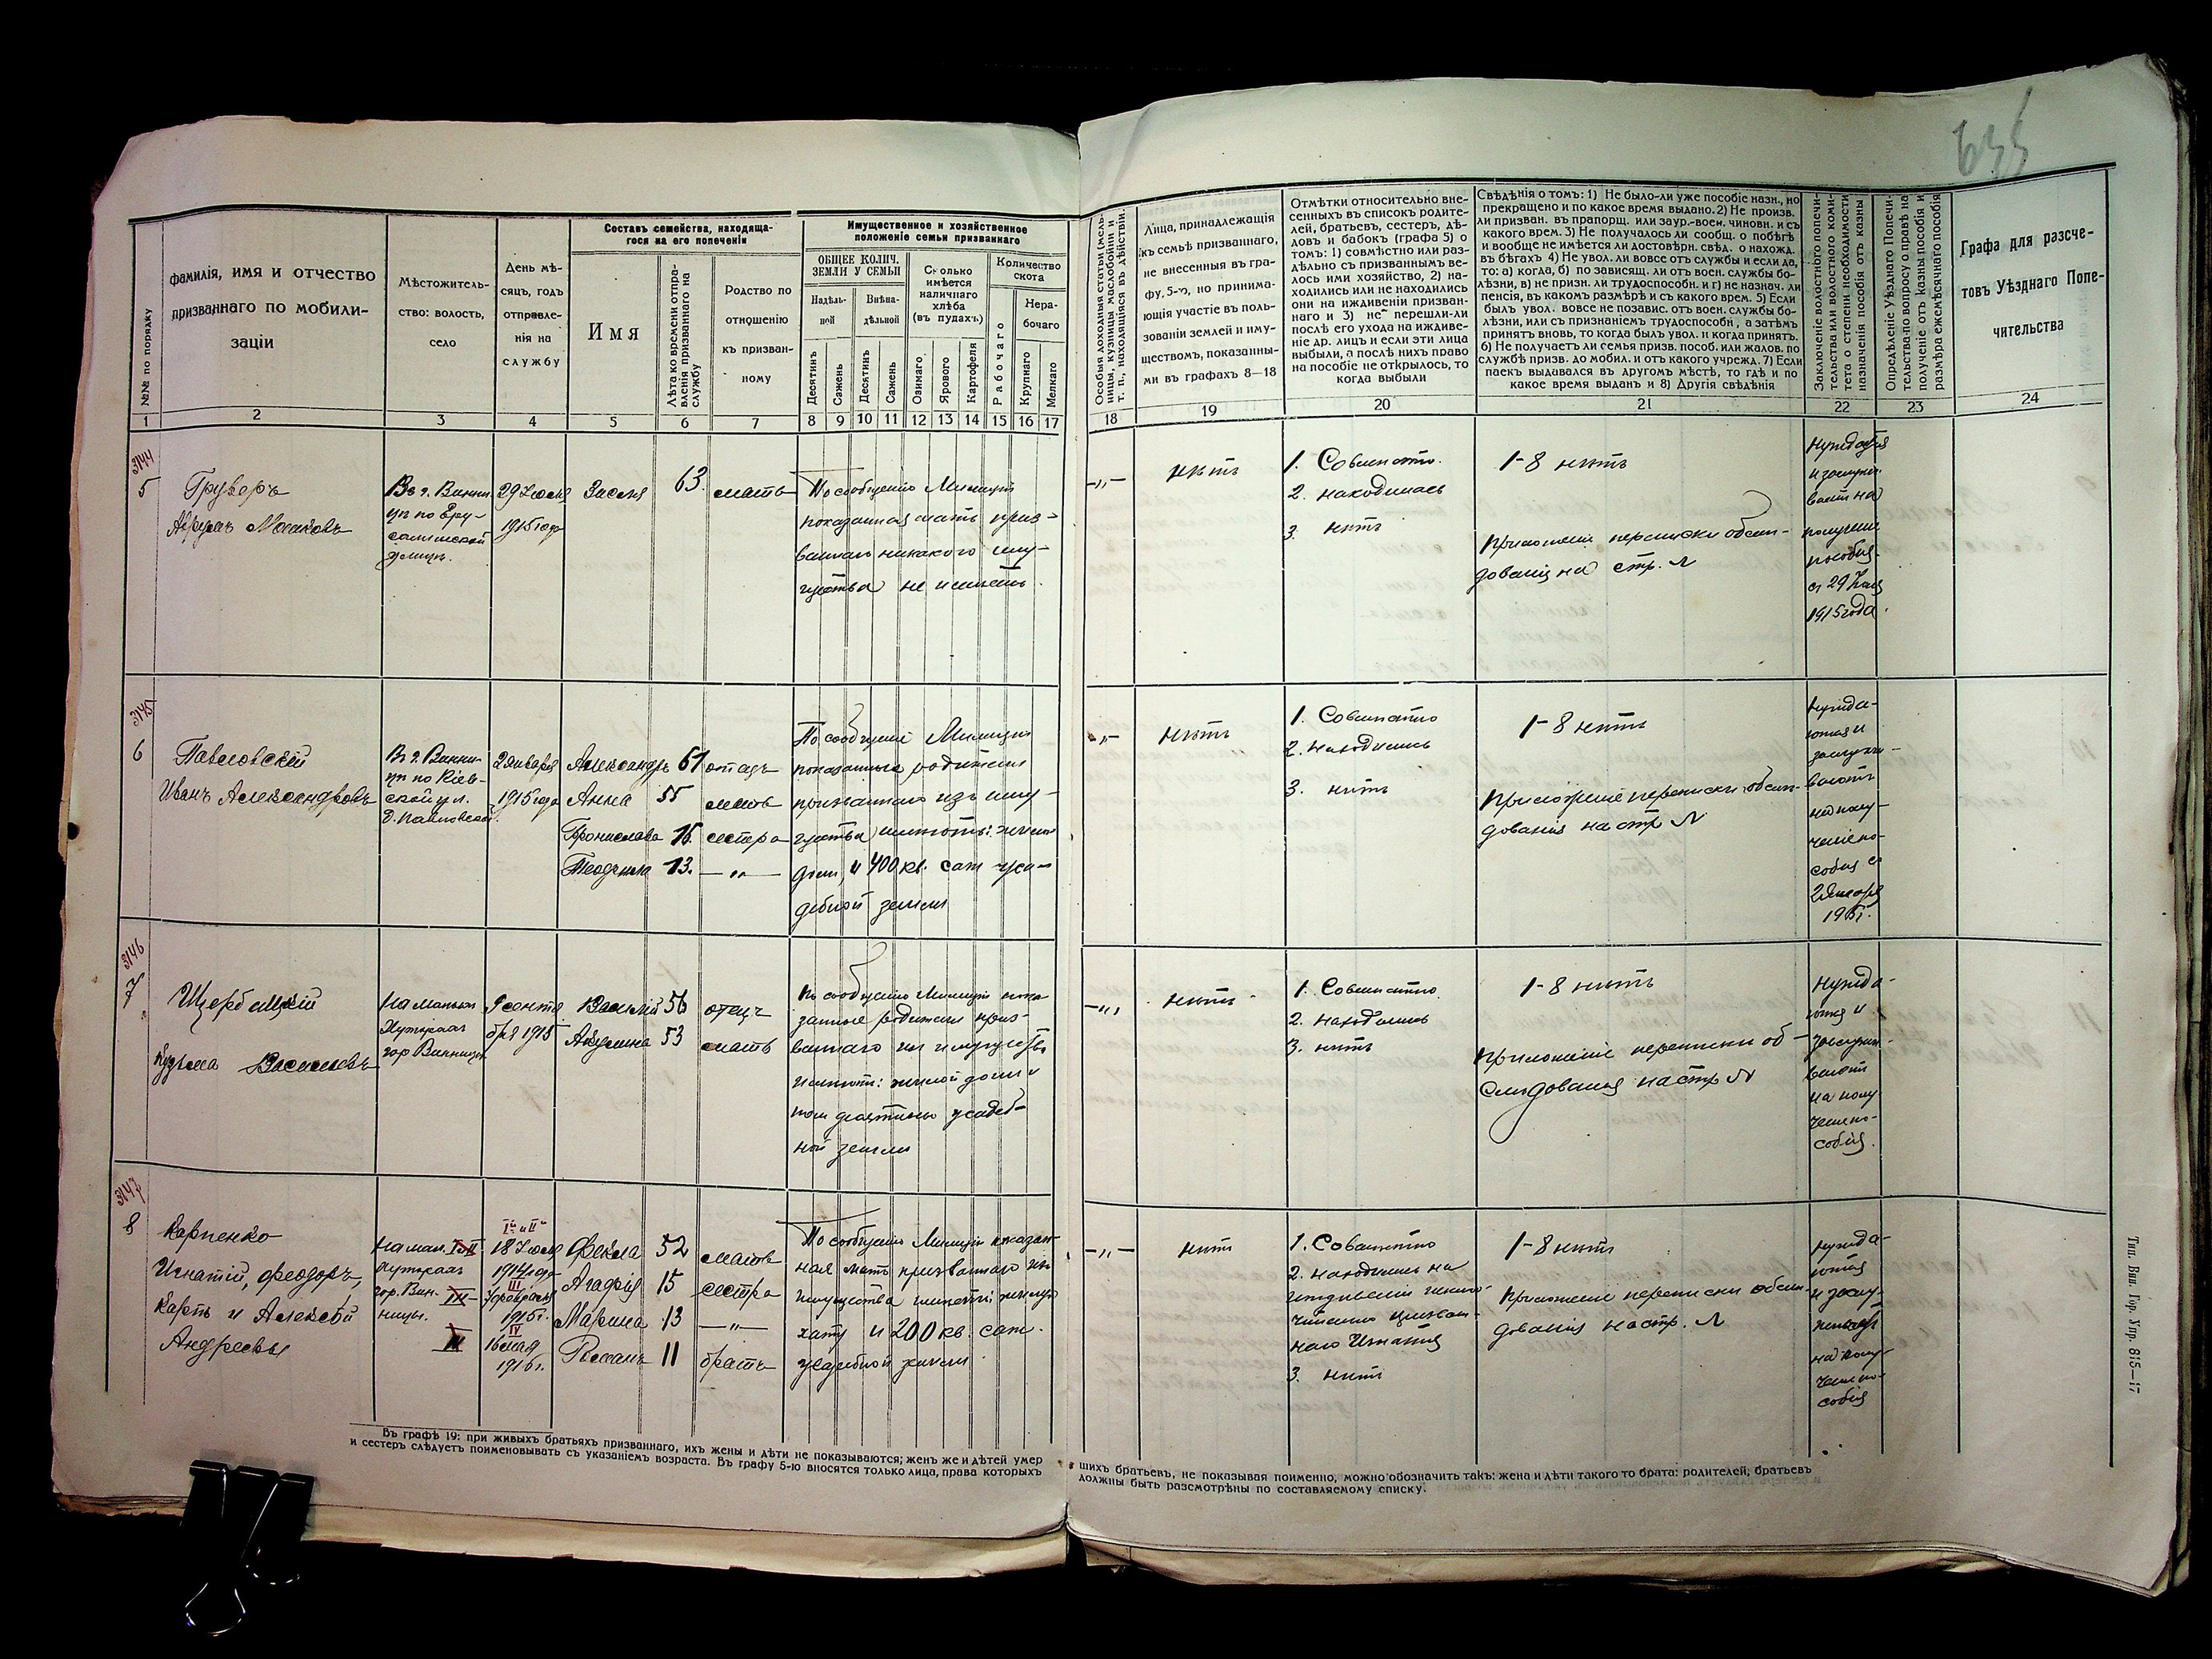 635
№№ по порядку
фамилія, имя и отчество
призваннаго по мобили-
заціи
Мѣстожитель-
ство: волость,
село
День мѣ-
сяцъ, годъ
отправле-
нія на
службу
Составъ семейства, находяща-
гося на его попеченіи
Имя
Лѣта ко времени отпра-
вленія призваннаго на
службу
Родство по
отношенію
къ призван-
ному
Имущественное и хозяйственное
положеніе семьи призваннаго
ОБЩЕЕ КОЛИЧ.
ЗЕМЛИ У СЕМЬИ
Надѣль-
ной
Внѣна-
дѣльной
Десятинъ
Сажень
Десятинъ
Сажень
Сколько
имѣется
наличнаго
хлѣба
(въ пудахъ)
Озимаго
Ярового
Картофеля
Количество
скота
Рабочаго
Нера-
бочаго
Крупнаго
Мелкаго
Особыя доходныя статьи (мель-
ницы, кузницы маслобойни и
т. п., находящіяся въ дѣйствіи.
Лица, принадлежащія
къ семьѣ призваннаго,
не внесенныя въ гра-
фу, 5-ю, но принима-
ющія участіе въ поль-
зованіи землей и иму-
ществомъ, показанны-
ми въ графахъ 8—18
Отмѣтки относительно вне-
сенныхъ въ списокъ родите-
лей, братьевъ, сестеръ, дѣ-
довъ и бабокъ (графа 5) о
томъ: 1) совмѣстно или раз-
дѣльно съ призваннымъ ве-
лось ими хозяйство, 2) на-
ходились или не находились
они на иждивеніи призван-
наго и 3) не перешли-ли
послѣ его ухода на иждиве-
ніе др. лицъ и если эти лица
выбыли, а послѣ нихъ право
на пособіе не открылось, то
когда выбыли
Свѣдѣнія о томъ: 1) Не было-ли уже пособіе назн., но
прекращено и по какое время выдано. 2) Не произв.
ли призван. въ прапорщ. или заур.-воен. чиновн. и съ
какого врем. 3) Не получалось ли сообщ. о побѣгѣ
и вообще не имѣется ли достовѣрн. свѣд. о нахожд.
въ бѣгахъ 4) Не увол. ли вовсе отъ службы и если да,
то: а) когда, б) по зависящ. ли отъ воен. службы бо-
лѣзни, в) не призн. ли трудоспособн. и г) не назнач. ли
пенсія, въ какомъ размѣрѣ и съ какого врем. 5) Если
былъ увол. вовсе не позавис. отъ воен. службы бо-
лѣзни, или съ признаніемъ трудоспособн, а затѣмъ
принятъ вновь, то когда былъ увол. и когда принятъ.
6) Не получаетъ ли семья призв. пособ. или жалов. по
службѣ призв. до мобил. и отъ какого учрежд. 7) Если
паекъ выдавался въ другомъ мѣстѣ, то гдѣ и по
какое время выданъ и 8) Другія свѣдѣнія
Заключеніе волостного попечи-
тельства или волостного коми-
тета о степени необходимости
назначенія пособія отъ казны
Опредѣленіе Уѣзднаго Попечи-
тельства по вопросу о правѣ на
полученіе отъ казны пособія и
размѣра ежемѣсячнаго пособія
Графа для разсче-
товъ Уѣзднаго Попе-
чительства
1 2 3 4 5 6 7 8 9 10 11 12 13 14 15 16 17
18 19 20 21 22 23 24
3144
5
Груберъ
Абрумъ Мошковъ
Въ г. Винни
цѣ по Еру-
салимской
улицѣ.
29 Іюля
1915 года
63.
мать
По сообщенію Милиціи
показанная мать приз-
ваннаго никакого иму-
щества не имѣетъ.
—„—
нѣтъ
1. Совмѣстно.
2. находилась
3. нѣтъ
1-8 нѣтъ
Приложеніе переписки обслѣ-
дованія на стр. №
нуждается
и заслужи-
ваетъ на
полученіе
пособія
съ 29 Іюля
1915 года.
3145
6
Павловскій
Иванъ Александровъ
Въ г. Винни-
цѣ по Кіев-
ской ул.
д. Павловской.
2 января
1915 года
Александръ 61 отецъ
Анна 55 мать
Бронислава 15. сестра
13. —„—
По сообщенію Милиціи
показанные родители
призваннаго изъ иму-
щества имѣютъ: жилой
домъ, и 400 кв. саж уса-
дебной земли
—„—
нѣтъ
1. Совмѣстно
2. находились
3. нѣтъ
1-8 нѣтъ
Приложеніе переписки обслѣ-
дованія на стр. №
нужда-
ются и
заслужи-
ваютъ
на полу-
ченіе по-
собія съ
2 Января
1915 г.
3146
7
Щербацкій
Кузьма Васильевъ
На малыхъ
Хуторахъ
гор Винницы
9 сентя
бря 1915
Василій 56 отецъ
Акулина 53 мать
По сообщенію Милиціи пока
занные родители приз-
ваннаго изъ имущества
имѣютъ: жилой домъ и
десятины усадеб-
ной земли
—„—
нѣтъ
1. Совмѣстно
2. находились
3. нѣтъ
1-8 нѣтъ
Приложеніе переписки об-
слѣдованія на стр №
нужда-
ются и
заслужи-
ваютъ
на полу-
ченіе по-
собія.
3147
8
Карпенко
Игнатій, Феодоръ,
Карпъ и Алексѣй
Андреевы
На мал.
Хуторахъ
гор. Вин-
ницы.
I и II
18 Іюля
1914 года
III
7 февраля
1915 г.
IV
16 мая
1916 г.
Фекла 52 мать
Агафія 15 сестра
Марина 13 —„—
Романъ 11 братъ
По сообщенію Милиціи показан-
ная мать призваннаго изъ
имущества имѣетъ: жилую
хату и 200 кв. саж.
усадебной земли
—„—
нѣтъ
1. Совмѣстно
2. находились на
иждивеніи исклю-
чительно призван-
наго Игнатія
3. нѣтъ
1-8 нѣтъ
Приложеніе переписки обслѣ-
дованія на стр. №
нужда-
ются
и заслу-
живаютъ
на полу-
ченіе по-
собія
Въ графѣ 19: при живыхъ братьяхъ призваннаго, ихъ жены и дѣти не показываются; женъ же и дѣтей умер
и сестеръ слѣдуетъ поименовывать съ указаніемъ возраста. Въ графу 5-ю вносятся только лица, права которыхъ
шихъ братьевъ, не показывая поименно, можно обозначить такъ: жена и дѣти такого то брата: родителей, братьевъ
должны быть разсмотрѣны по составляемому списку.
Тип. Вин. Гор. Упр. 815—17